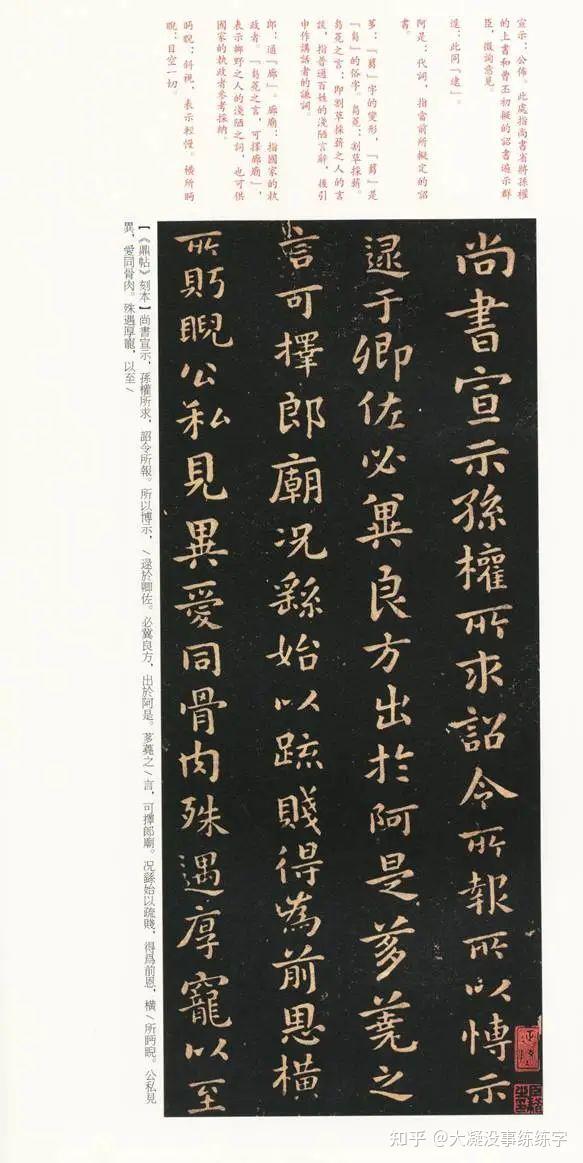 宣示：公佈。此處指尚書省將孫權
的上書和曹丕初擬的詔書遍示群
臣，徵詢意見。
逯：此同「逮」。
阿是：代詞，指當前所擬定的詔
書。
芗：「蒭」字的變形，「蒭」是
「芻」的俗字。芻蕘：割草採薪。
芻蕘之言：即割草採薪之人的言
談，指普通百姓的淺陋言辭，後引
申作講話者的謙詞。
郎：通「廊」。廊廟：指國家的執
政者。「芻蕘之言，可擇廊廟」，
表示鄉野之人的淺陋之詞，也可供
國家的執政者參考採納。
眄睨：斜視，表示輕慢。橫所眄
睨：目空一切。
尚書宣示孫權所求詔令所報所以博示
逯于卿佐必冀良方出於阿是芗蕘之
言可擇郎廟況繇始以疏賤得為前恩橫
所眄睨公私見異愛同骨肉殊遇厚寵以至
【《鼎帖》刻本】尚書宣示，孫權所求，詔令所報。所以博示，／逯於卿佐。必冀良方，出於阿是。芗蕘之／言，可擇郎廟。况繇始以疏賤，得爲前恩，橫／所眄睨。公私見
異，愛同骨肉。殊遇厚寵，以至／
知乎 @大凝没事练练字